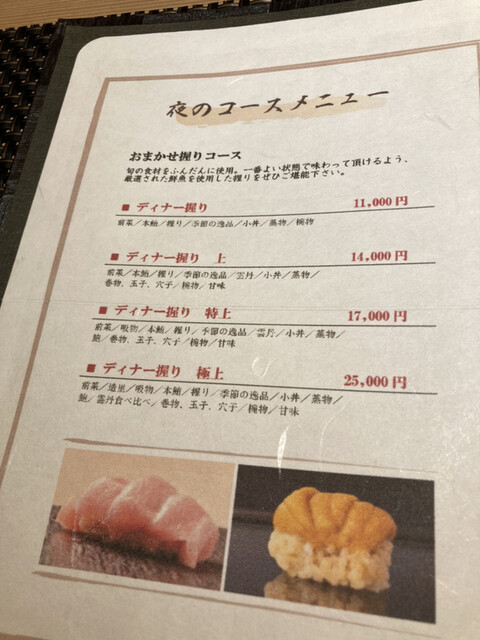 夜のコースメニュー
おまかせ握りコース
旬の食材をふんだんに使用。一番よい状態で味わって頂けるよう、
厳選された鮮魚を使用した握りをぜひご堪能下さい。
■ ディナー握り 11,000円
前菜／本鮪／握り／季節の逸品／小丼／蒸物／椀物
■ ディナー握り 上 14,000円
前菜／本鮪／握り／季節の逸品／雲丹／小丼／蒸物／
巻物、玉子、穴子／椀物／甘味
■ ディナー握り 特上 17,000円
前菜／吸物／本鮪／握り／季節の逸品／雲丹／小丼／蒸物／
鮑／巻物、玉子、穴子／椀物／甘味
■ ディナー握り 極上 25,000円
前菜／造里／吸物／本鮪／握り／季節の逸品／小丼／蒸物／
鮑／雲丹食べ比べ／巻物、玉子、穴子／椀物／甘味